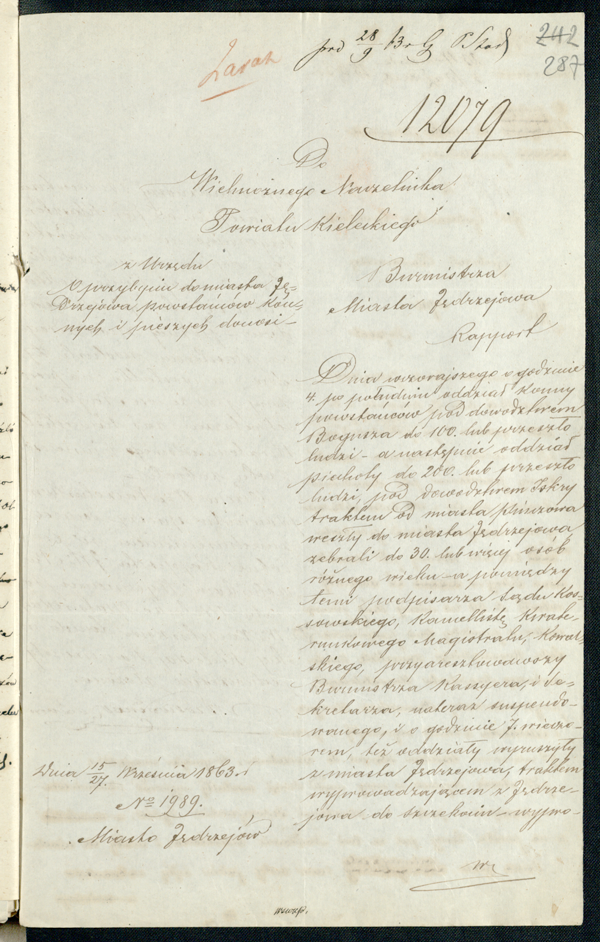 Zaraz
prd 28/9
242
287
12079
Do
Wielmożnego Naczelnika
Powiatu Kieleckiego
z Urzędu
O przybyciu do miasta Ję-
drzejowa powstańców kon-
nych i pieszych donosi –
Burmistrza
Miasta Jędrzejowa
Rapport
Dnia wczorajszego o godzinie
4. po południu oddział konny
powstańców pod dowództwem
Bogusza do 100. lub przeszło
ludzi – a następnie oddział
piechoty do 200. lub przeszło
ludzi, pod dowództwem Iskry
traktem od miasta Pinczowa
weszły do miasta Jędrzejowa
zebrali do 30. lub więcej osób
różnego wieku – a pomiędzy
temi podpisarza Sądu Kos-
sowskiego, Kancellistę Kwate-
runkowego Magistratu, Kowal-
skiego, przyaresztowawszy
Burmistrza Kassyera, i Se-
kretarza, nateraz suspendo-
wanego, i o godzinie 7. wieczo-
rem, też oddziały wyruszyły
z miasta Jędrzejowa, traktem
wyprowadzającem z Jędrze-
jowa do Szczekocin – wypro-
Dnia 15/27. Września 1863.r
No 1989.
Miasto Jędrzejów